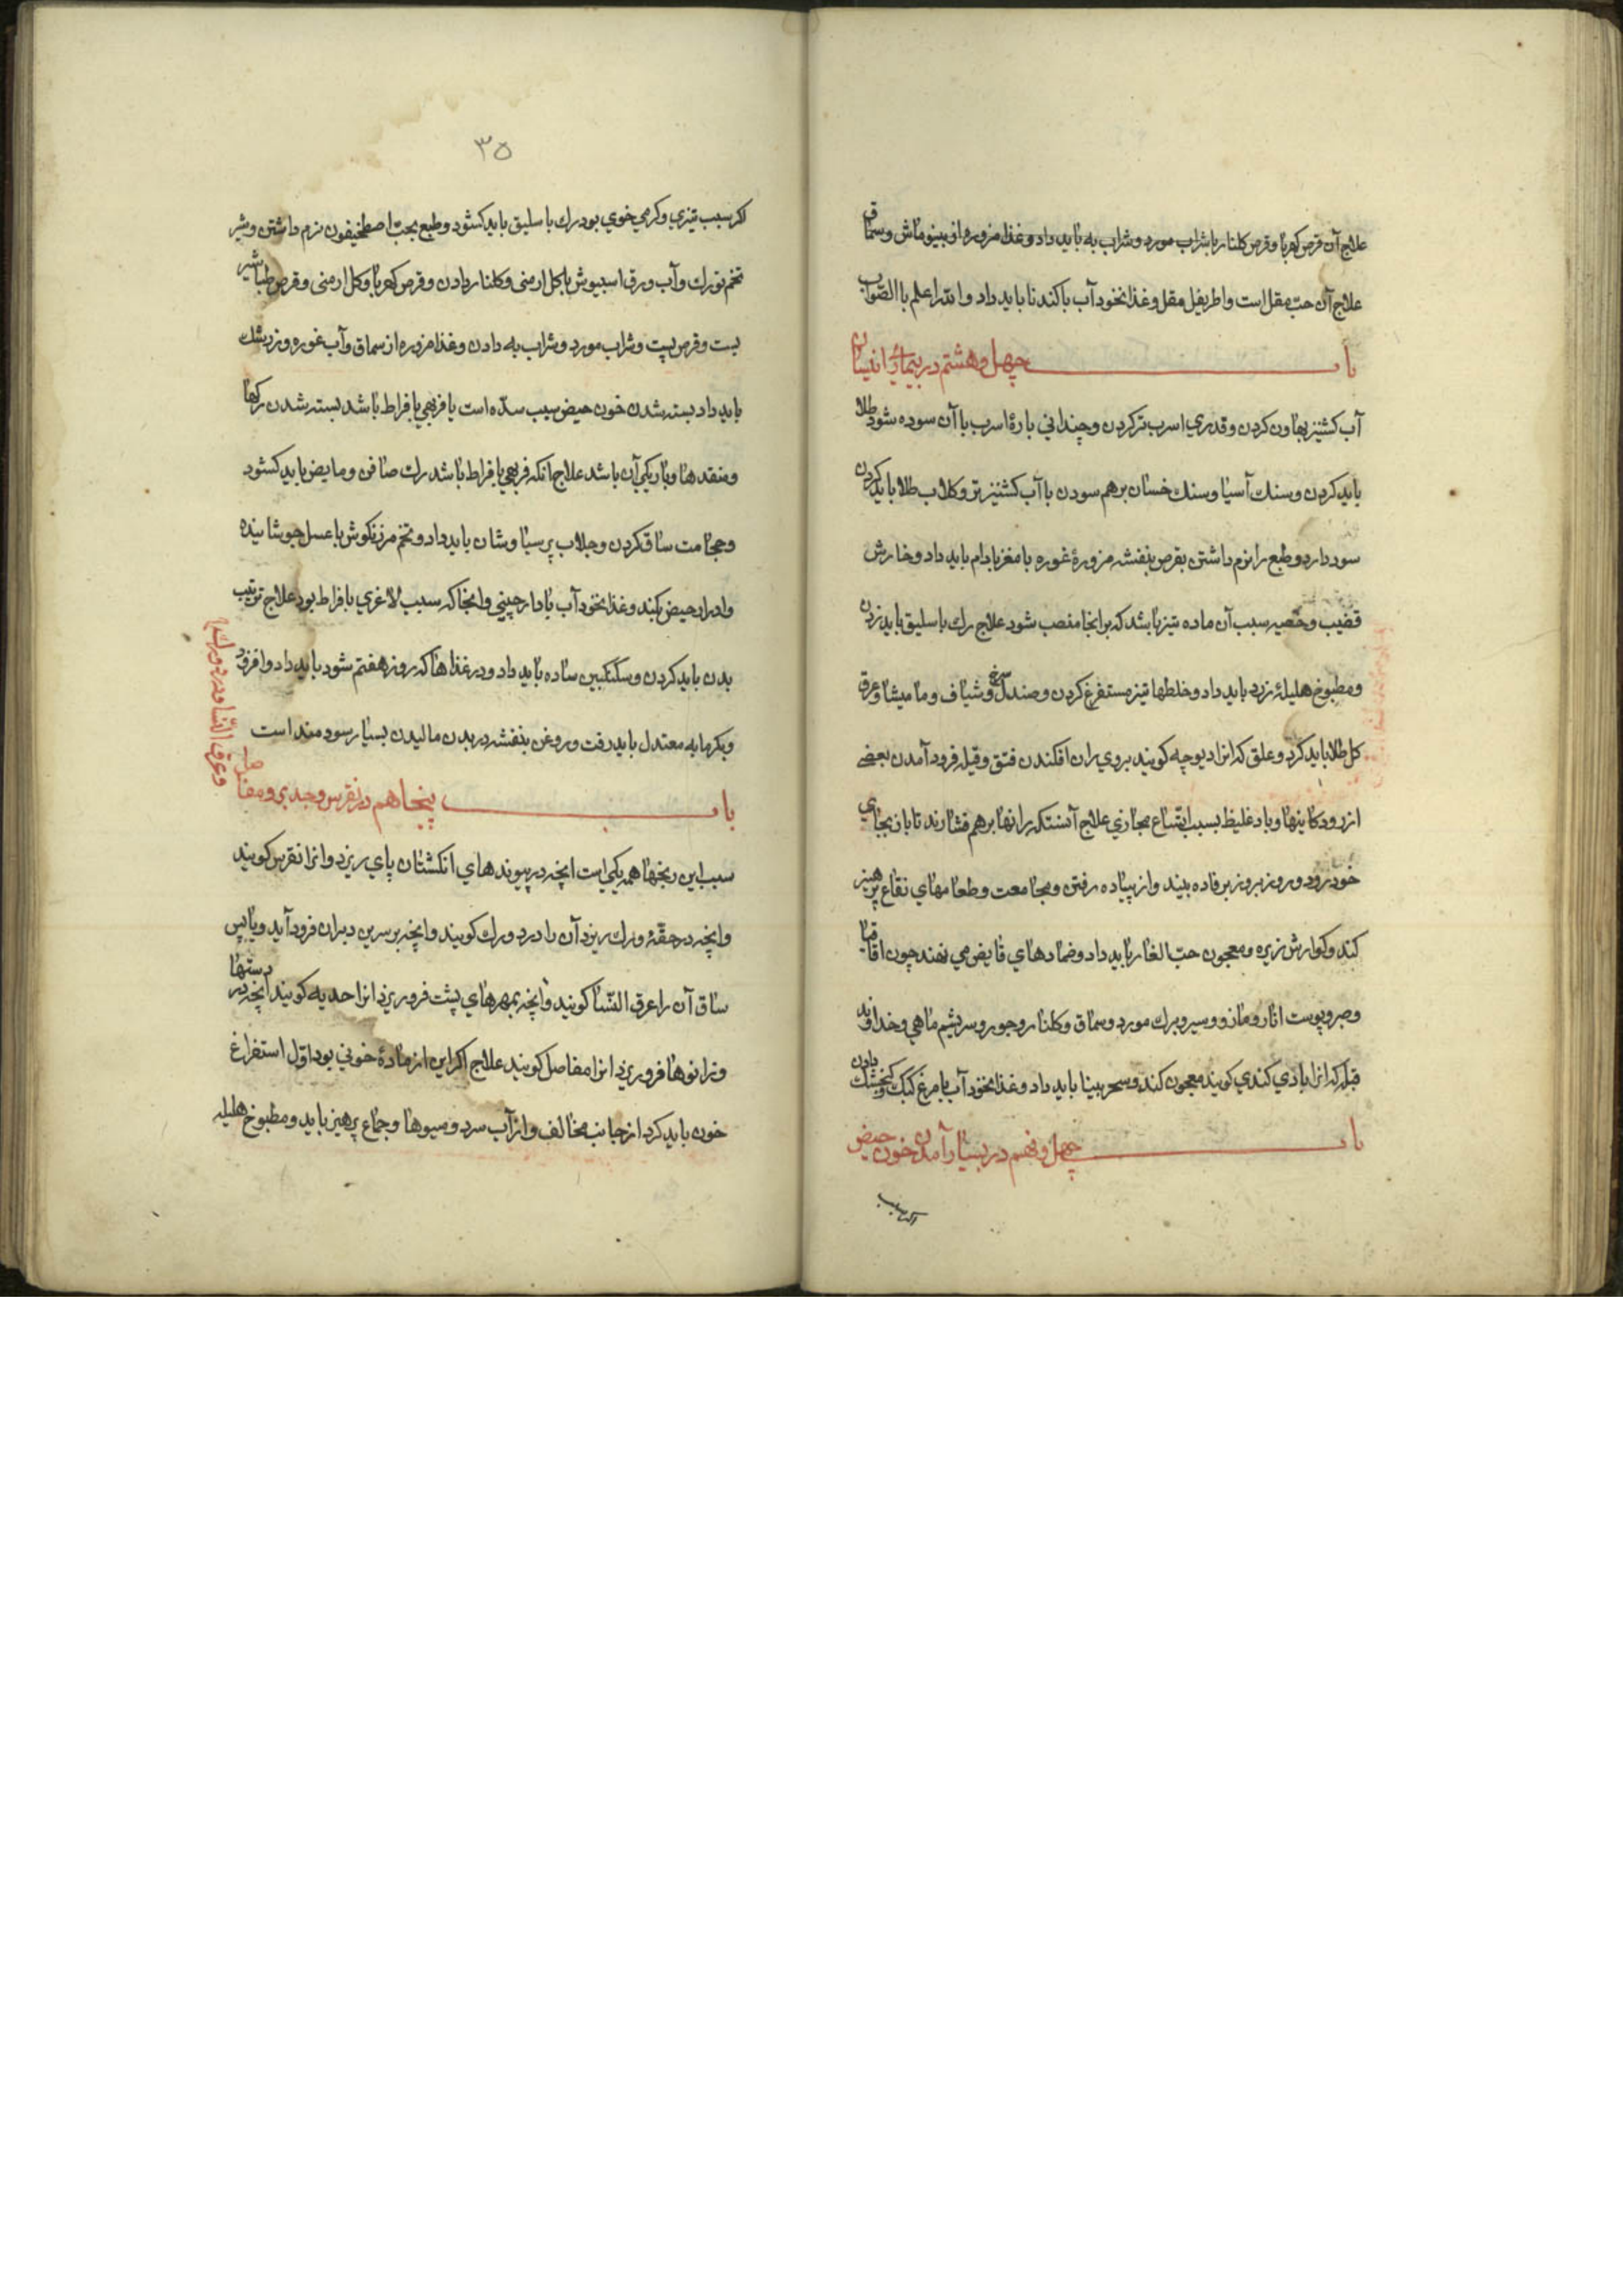 علاج آن قرص کهربا و قرص کلنار با شراب مورد و شراب به باید داد و غذا مزوره از بینو ماش و سماق
علاج آن حبّ مقل است و اطریفل مقل و غذا نخود آب با کندنا باید داد و اعلم باالصّواب
باب چهل و هشتم در بیماری
آب کشنیز بهاون کردن و قدری اسرب تر کردن و چندانی پارهٔ اسرب با آن سوده شود طلا
باید کردن و سنك آسیا و سنك خسان برهم سودن با آب کشنیز تر و کلاب طلا باید کردن
سود دارد و طبع را نرم داشتن بقرص بنفشه مزورهٔ غوره با مغز بادام باید داد و خارش
قضیب و خصیه سبب آن ماده تیز باشد که برانجا منصب شود علاج رك باسلیق باید زدن
و مطبوخ هلیلهٔ زرد باید داد و خلطها تیز مستفرغ کردن و صندل سرخ و شیاف و مامیشا و عرق
کل طلا باید کرد و علق که انرا دیوچه کویند بروی ران افکندن فتق و قیله فرود آمدن بعضی
از رودکانیها و باد غلیظ بسبب اتّساع مجاری علاج آنستکه رانها برهم فشارند تا باز بجای
خود رود و روز بروز برفاده ببند و از پیاده رفتن و مجامعت و طعامهای نفاع پرهیز
کند و کوارش زیره و معجون حبّ الغار باید داد و ضمادهای قابض می نهند چون اقاقیا
و صبر و پوست انار و مازو و سرو برك مورد و سماق و کلنار و جوز و سریشم ماهی و خداوند
قیله که انرا بادی کندی کویند معجون کند و سحربینا باید داد و غذا نخود آب با مرغ کبك و کنجشك دادن
باب چهل و نهم در بسیار آمدن خون حیض
اکر سبب
۳۵
اکر سبب تیزی و کرمی خون بود رك باسلیق باید کشود و طبع بحبّ اصطمخیقون نرم داشتن و شیر
تخم تورك و آب ورق اسبیوش با کل ارمنی و کلنار دادن و قرص کهربا و کل ارمنی و قرص طباشیر
بست و قرص بست و شراب مورد و شراب به دادن و غذا مزوره از سماق و آب غوره و زرشك
باید داد بسته شدن خون حیض سبب سدّه است یا فربهی بافراط باشد بسته شدن رکها
و منفدها و باریکی آن باشد علاج انکه فربهی بافراط باشد رك صافن و مابض باید کشود
و حجامت ساق کردن و جلاب پرسیاوشان باید داد و تخم مرزنکوش با عسل جوشانیده
و ادرار حیض بکند و غذا نخود آب با دارچینی و انجا که سبب لاغری بافراط بود علاج ترتیب
بدن باید کردن و سکنکبین ساده باید داد و در غذاها که روز هفتم شود باید داد و افزود
و بکرمابه معتدل باید رفت و روغن بنفشه در بدن مالیدن بسیار سودمند است
باب پنجاهم در نقرس و حدبه و مفاصل
و عرق النّسا و درد ورك
سبب این رنجها همه یکی است انچه در پیوندهای انکشتان پای ریزد و انرا نقرس کویند
وانچه در حقّهٔ ورك ریزد آن را درد ورك کویند وانچه بر سرین و بران فرود آید و یا پس
ساق آن را عرق النّسا کویند وانچه بمهرهای پشت فرو ریزد انرا حدبه کویند انچه در دستها
و زانوها فرو ریزد انرا مفاصل کویند علاج اکر این از مادهٔ خونی بود اوّل استفراغ
خون باید کرد از جانب مخالف و از آب سرد و میوها و جماع پرهیز باید و مطبوخ هلیله